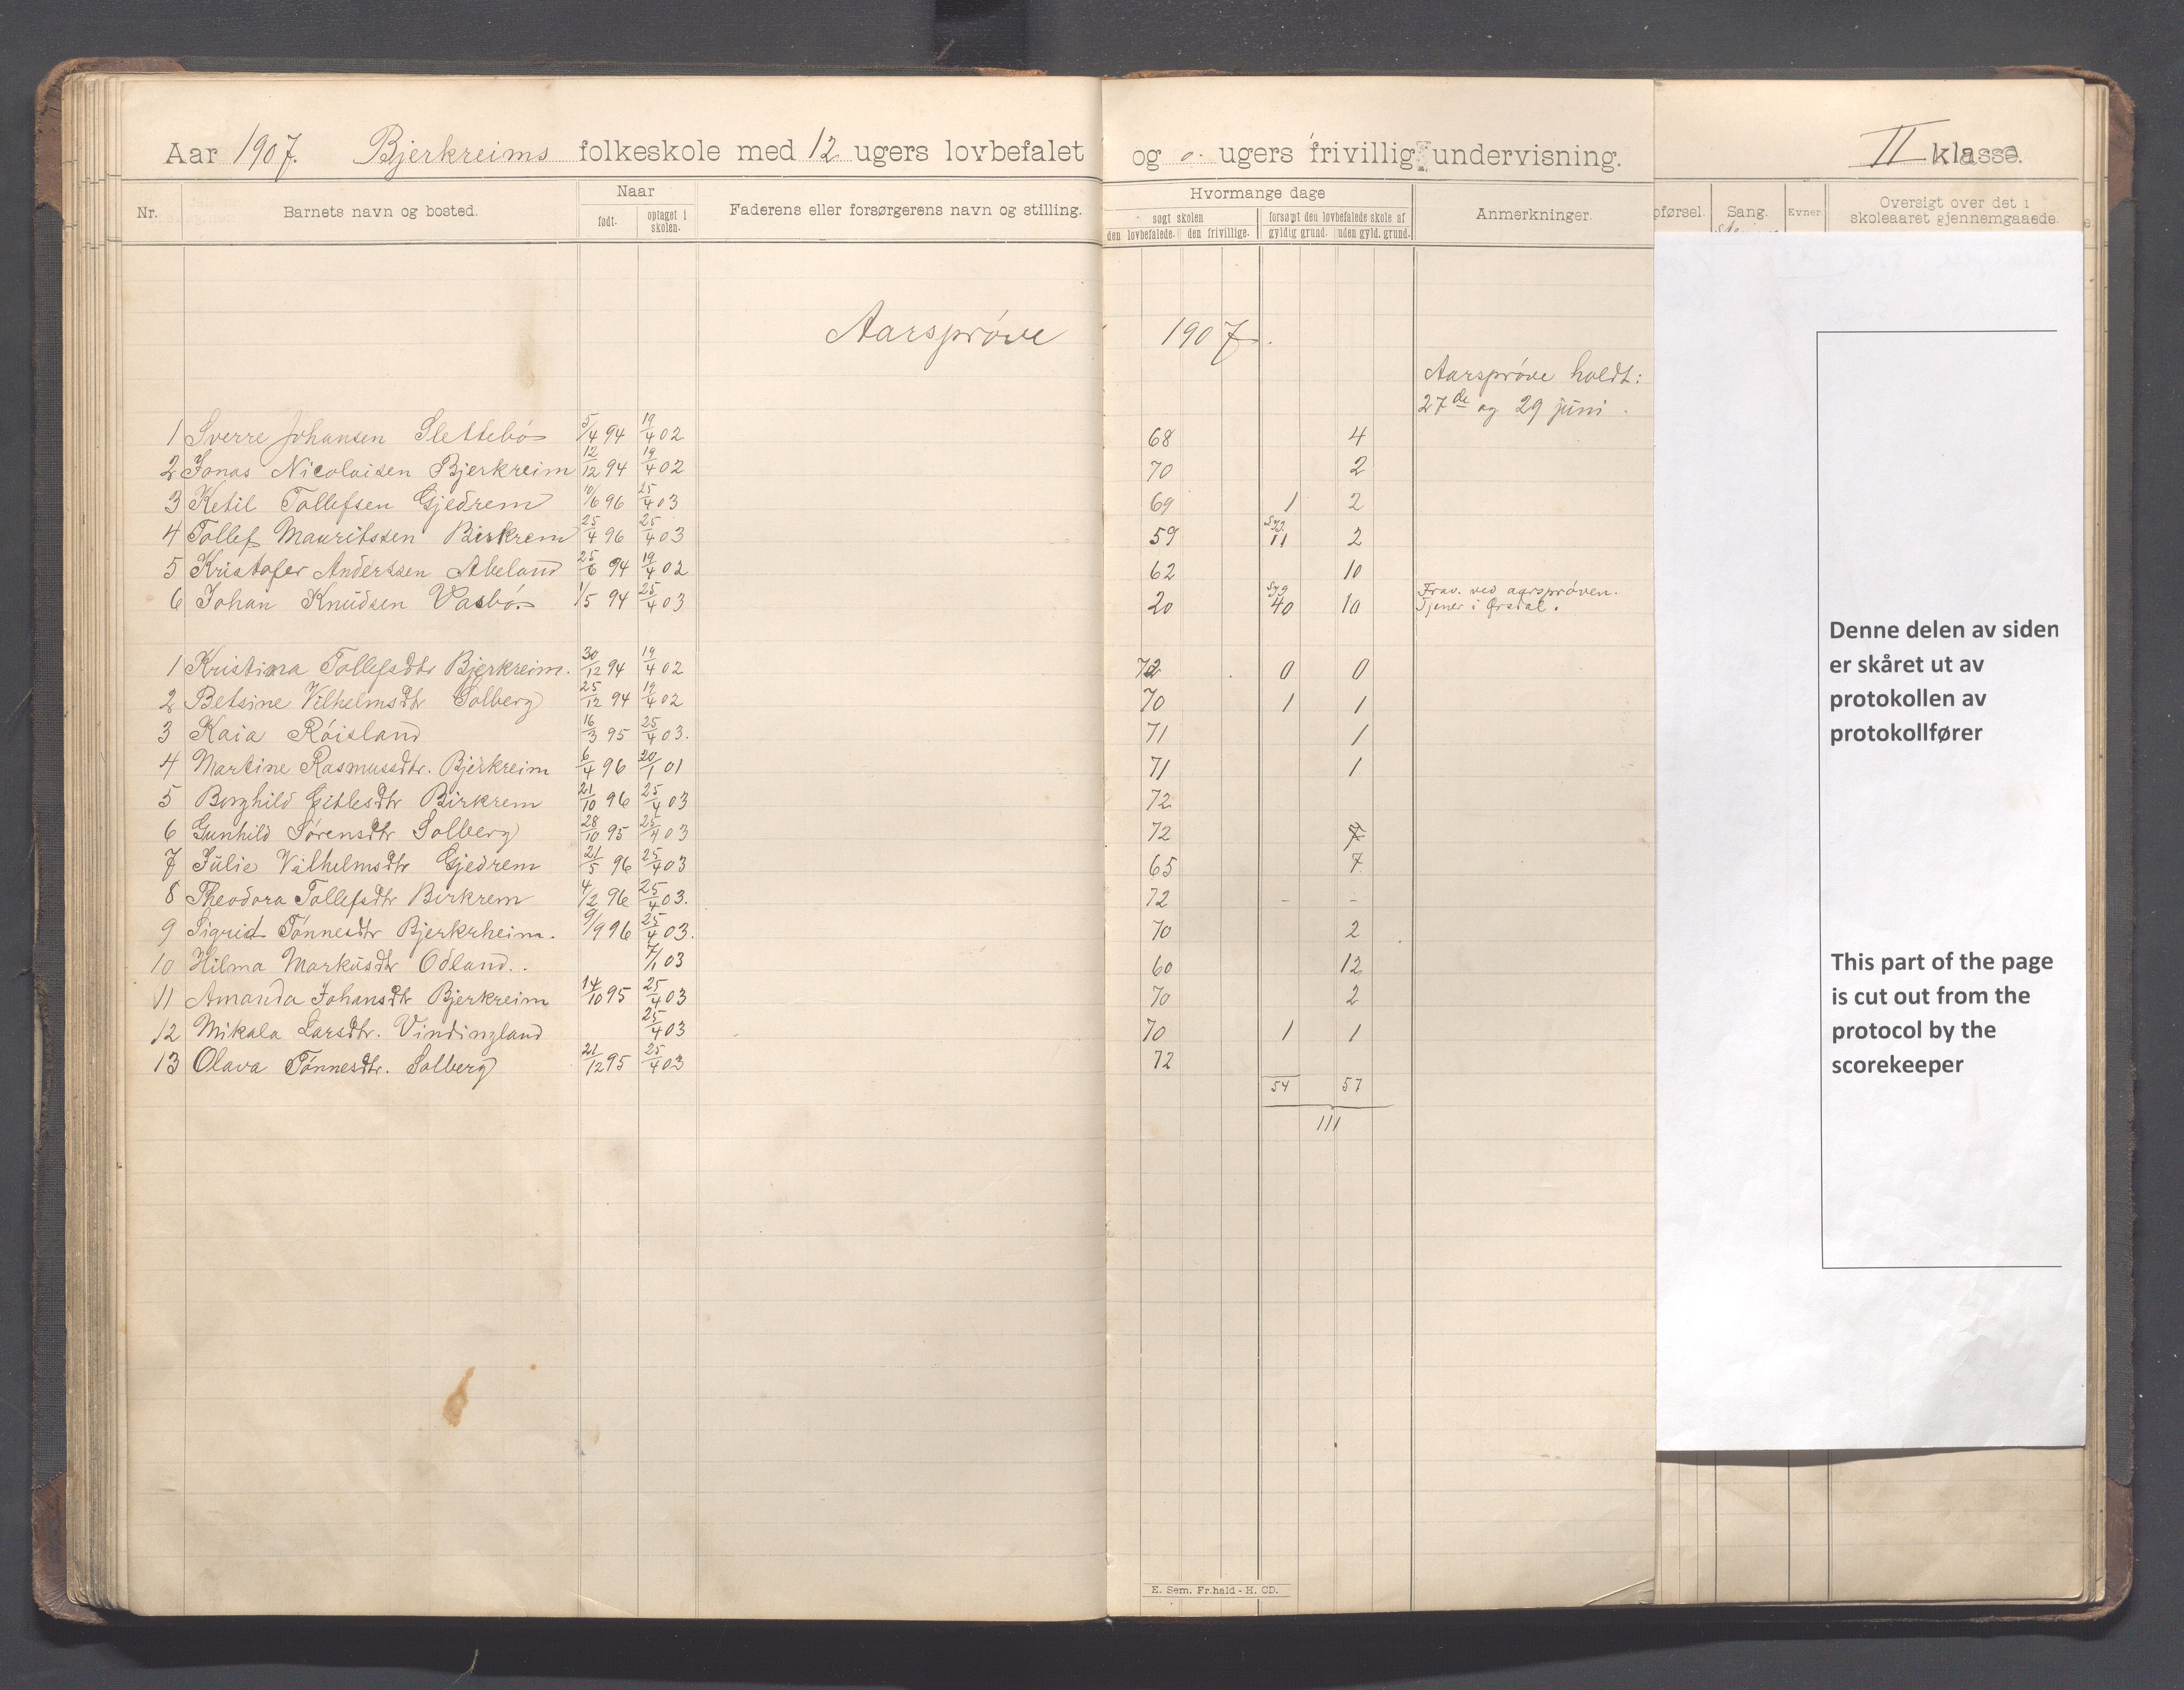 Aar 1907. Bjerkreims folkeskole med 12 ugers lovbefalet og 0. ugers frivillig undervisning. II klasse.
Nr. Barnets navn og bosted. Naar født. optaget i skolen. Faderens eller forsørgerens navn og stilling. Hvormange dage søgt skolen den lovbefalede. den frivillige. forsømt den lovbefalede skole af gyldig grund. uden gyld. grund. Anmerkninger. pførsel. Sang. Evner Oversigt over det i skoleaaret gjennemgaaede.
Aarsprøve 1907.
Aarsprøve holdt:
27de og 29 juni.
1 Sverre Johansen Slettebø 5/4 94 19/4 02 68 4
2 Jonas Nicolaisen Bjerkreim 12/12 94 19/4 02 70 2
3 Ketil Tollefsen Gjedrem 10/6 96 25/4 03 69 1 2
4 Tollef Mauritssen Birkrem 25/4 96 25/4 03 59 Syg. 11 2
5 Kristofer Anderssen Abeland 25/6 94 19/4 02 62 10
6 Johan Knudsen Vasbø 1/5 94 25/4 03 20 Syg 40 10 Frav. ved aarsprøven. Tjener i Ørsdal.
1 Kristina Tollefsdtr Bjerkreim. 30/12 94 19/4 02 72 0 0
2 Betsine Vilhelmsdtr Solberg 25/12 94 19/4 02 70 1 1
3 Kaia Røisland 16/3 95 25/4 03. 71 1
4 Martine Rasmussdtr. Bjerkreim 6/4 96 20/1 01 71 1
5 Borghild Gitlesdtr Birkrem 21/10 96 25/4 03 72
6 Gunhild Sørensdtr Solberg 28/10 95 25/4 03 72 7
7 Julie Vilhelmsdtr Gjedrem 21/5 96 25/4 03 65 7
8 Theodora Tollefsdtr Birkrem 4/2 96 25/4 03. 72 - -
9 Sigrid Tønnesdtr Bjerkrheim. 9/9 96 25/4 03. 70 2
10 Hilma Markusdtr Odland.. 7/1 03 60 12
11 Amanda Johansdtr Bjerkreim 14/10 95 25/4 03 70 2
12 Mikala Larsdtr. Vindingland 25/4 03 70 1 1
13 Olava Tønnesdtr. Solberg 21/12 95 25/4 03 72
54 57
111
E. Sem. Fr.hald - H. CD.
Denne delen av siden
er skåret ut av
protokollen av
protokollfører
This part of the page
is cut out from the
protocol by the
scorekeeper